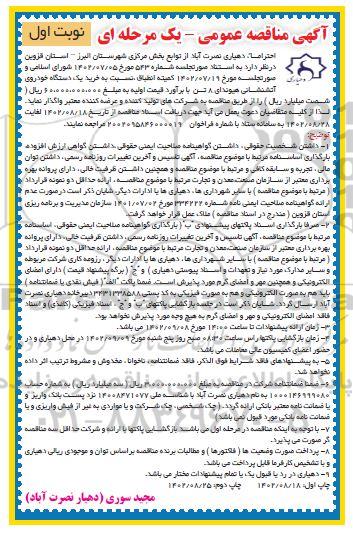 آگهی مناقصه عمومی - یک مرحله ای
نوبت اول
دهیاری
احتراماً، دهیاری نصرت آباد از توابع بخش مرکزی شهرستان البرز - استان قزوین
در نظر دارد به استناد صورتجلسه شماره ۵۴۳ مورخ ۱۴۰۲/۰۷/۰۵ شورای اسلامی و
صورتجلسه مورخ ۱۴۰۲/۰۷/۱۹ کمیته انطباق، نسبت به خرید یک دستگاه خودروی
آتشنشانی هیوندای ۸ تن با برآورد قیمت اولیه به مبلغ ۶۰،۰۰۰،۰۰۰،۰۰۰ ریال (
شصت میلیارد ریال) را از طریق مناقصه به شرکت های تولید کننده و عرضه کننده معتبر واگذار نماید.
لذا از کلیه متقاضیان دعوت بعمل می آید جهت دریافت اسناد مناقصه از تاریخ ۱۴۰۲/۰۸/۱۸ لغایت
۱۴۰۲/۰۸/۲۸ به سامانه ستاد با شماره فراخوان ۲۰۰۲۰۹۵۸۴۶۰۰۰۰۱۹ مراجعه نمایند.
توضیح:
۱- داشتن شخصیت حقوقی، داشتن گواهینامه صلاحیت ایمنی حقوقی، داشتن گواهی ارزش افزوده،
بارگذاری اساسنامه مرتبط با موضوع مناقصه، آگهی تاسیس و آخرین تغییرات روزنامه رسمی، داشتن توان
مالی، تجربه و سابقه کافی و مرتبط با موضوع مناقصه و همچنین داشتن ظرفیت خالی، دارای پروانه بهره
برداری معتبر از سازمان صنعت، معدن و تجارت مرتبط با موضوع مناقصه، ارائه حداقل دو نمونه قرارداد
( مرتبط با موضوع مناقصه ) با سایر شهرداری ها، دهیاری ها یا ادارات دیگر، شایان ذکر است در صورت عدم
ارائه گواهینامه صلاحیت ایمنی نامه شماره ۳۳۴۲۲۲ مورخ ۱۴۰۱/۰۷/۰۲ سازمان مدیریت و برنامه ریزی
استان قزوین ( مندرج در اسناد مناقصه ) ملاک عمل قرار خواهد گرفت.
۲- صرفا بارگذاری اسناد پاکتهای پیشنهادی "ب" ( بارگذاری گواهینامه صلاحیت ایمنی حقوقی، اساسنامه
مرتبط با موضوع مناقصه، آگهی تاسیس و آخرین تغییرات روزنامه رسمی، داشتن ظرفیت خالی، دارای پروانه
بهره برداری معتبر از سازمان صنعت، معدن و تجارت مرتبط با موضوع مناقصه، ارائه حداقل دو نمونه قرارداد
( مرتبط با موضوع مناقصه ) با سایر شهرداری ها، دهیاری ها یا ادارات دیگر، رزومه کاری شرکت مربوطه
و سایر مدارک مورد نیاز و تعهدات و اسناد پیوستی دهیاری ) و "ج" ( برگه پیشنهاد قیمت ) دارای امضای
الکترونیکی و همچنین مهر و امضای گرم مورد پذیرش است. ضمنا پاکت "الف" ( فیش نقدی یا ضمانتنامه )
باید هم به صورت الکترونیکی و هم به صورت فیزیکی به کد پستی ۳۴۳۱۱۳۳۵۸۸ دبیرخانه دهیاری نصرت
آباد ارسال گردد. شایان ذکر است در جلسه بازگشایی پاکتهای "ب" و "ج"، اسناد فیزیکی (کاغذی) و اسناد
فاقد امضای الکترونیکی و مهر و امضای گرم به هیچ وجه مورد پذیرش نخواهد بود.
۳- زمان ارائه پیشنهادات تا ساعت ۱۴:۰۰ مورخ ۱۴۰۲/۰۹/۰۸ می باشد.
۴- زمان بازگشایی پاکتها راس ساعت ۰۸:۳۰ صبح روز پنج شنبه مورخ ۱۴۰۲/۰۹/۰۹ در محل دهیاری و در
حضور اعضای کمیسیون عالی معاملات می باشد.
۵- به پیشنهادهای فاقد شرایط فوق الذکر، فاقد ضمانتنامه، ناخوانا، مخدوش و مشروط ترتیب اثر داده
نخواهد شد.
۶- ضمنا ضمانتنامه شرکت در مناقصه به مبلغ ۳،۰۰۰،۰۰۰،۰۰۰ ریال ( سه میلیارد ریال ) به شماره حساب
به نام دهیاری نصرت آباد با شناسه ملی ۱۴۰۰۸۴۷۱۰۷۷ نزد پست بانک واریز و
یا ضمانت نامه معتبر بانکی ارائه گردد. ( چک شخصی، چک شرکت و یا مواردی به غیر از فیش واریزی و یا
ضمانت نامه بانکی مورد قبول نمی باشد)
۷- با توجه به اینکه مناقصه در مرحله اول می باشد بازگشایی پاکتها با ارائه و شرکت حداقل سه مناقصه
گر صورت می پذیرد.
۸- پرداخت صورت وضعیت ها ( فاکتورها ) و مطالبات برنده مناقصه براساس توان و موجودی ریالی دهیاری
و با تشخیص کارفرما قابل پرداخت می باشد.
۹- دهیاری در رد یا قبول یک یا تمام پیشنهادات مختار می باشد.
چاپ اول: ۱۴۰۲/۰۸/۱۸ چاپ دوم: ۱۴۰۲/۰۸/۲۵
مجید سوری (دهیار نصرت آباد)